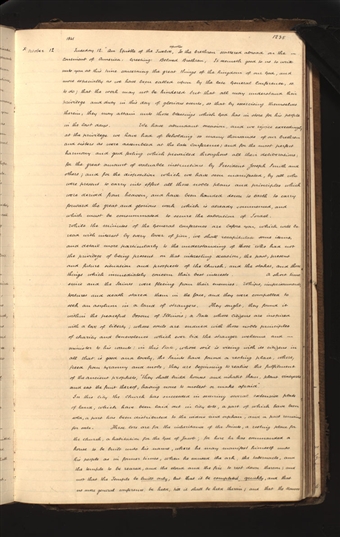 1841
1235
October 12
Tuesday 12. An Epistle of the Twelve, to the brethren scattered abroad on the
Continent of America. Greeting. Beloved Brethren, It seemeth good to us to write
unto you at this time concerning the great things of the kingdom of our God, and
more especially as we have been called upon by the late General Conference, so
to do; that the work may not be hindered but that all may understand their
privilege and duty in this day of glorious events, so that by exercising themselves
therein, they may attain unto those blessings which God has in store for his people
in the last days. We have abundant occasion, and we rejoice exceedingly
at the privilege we have had of beholding so many thousands of our brethren
and sisters as were assembled at the late conference; and for the most perfect
harmony and good feeling which prevailed throughout all their deliberations;
for the great amount of valuable instruction by President Joseph Smith and
others; and for the disposition which we have seen manifested, by all who
were present to carry into effect all those noble plans and principles which
were derived from heaven, and have been handed down to earth to carry
forward the great and glorious work which is already commenced, and
which must be consummated to secure the salvation of Israel.
While the minutes of the General conference are before you, which will be
read with interest by every lover of Zion, we shall recapitulate some items,
and detail more particularly to the understanding of those who had not
the privilege of being present on that interesting occasion, the past, present
and future situation and prospects of the church, and the stakes, and those
things which immediately concern their best interests. A short time
since and the Saints were fleeing from their enemies. Whips, imprisonment,
tortures and death stared them in the face, and they were compelled to
seek an asylum in a land of strangers. They sought, they found it
within the peaceful bosom of Illinois; a State whose citizens are inspired
with a love of liberty; whose souls are endowed with those noble principles
of charity and benevolence which ever bid the stranger welcome and
minister to his wants: in this State, whose soil is vieing with its citizens in
all that is good and lovely, the Saints have found a resting place, where,
freed from tyranny and mobs, they are beginning to realize the fulfilment
of the ancient prophets, "they shall build houses and inhabit them, plant vineyards
and eat the fruit thereof, having none to molest or make afraid".
In this city the Church has succeeded in securing several extensive plats
of land, which have been laid out in city lots, a part of which have been
sold, a part has been distributed to the widow and orphan, and a part remains
for sale. These lots are for the inheritance of the Saints, a resting place for
the church, a habitation for the God of Jacob; for here he has commanded a
house to be built unto his name, where he may manifest himself unto
his people as in former times, when he caused the ark, the tabernacle, and
the temple to be reared, and the cloud and the fire to rest down thereon; and
not that the temple be built only; but that it be completed quickly, and that
no more general conference be held, till it shall be held therein; and that the house